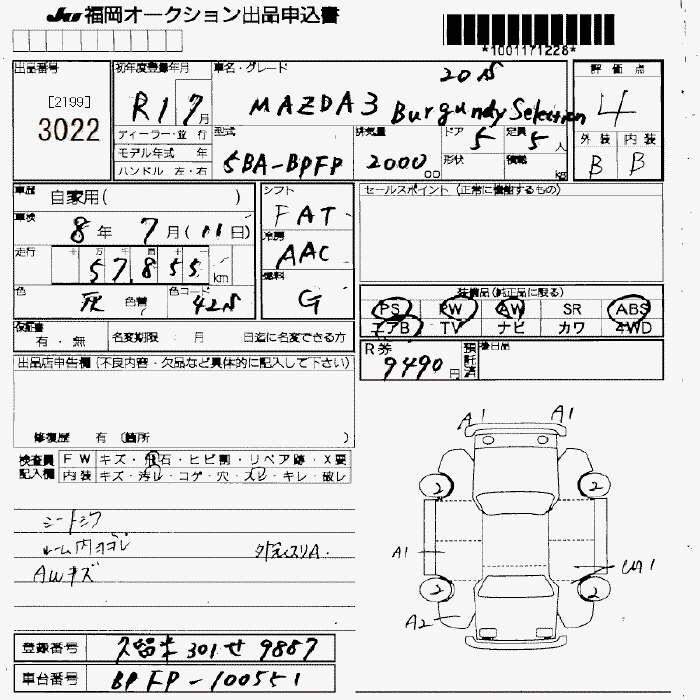 JU 福岡オークション出品申込書
*1001171228*
出品番号 [2199] 3022
初年度登録年月 R1 7月
車名・グレード 20S
MAZDA3 Burgundy Selection
評価点 4
外装 内装
B B
ディーラー・並行
モデル年式 年
ハンドル 左・右
型式 5BA-BPFP
排気量 2000 cc
ドア 5
定員 5人
形状
積載 kg
車歴 自家用( )
車検 8年 7月(11日)
走行 十 万 千 百 十 一
57,855 km
色 灰 色替 色コード 42S
シフト FAT
冷房 AAC
燃料 G
セールスポイント (正常に機能するもの)
装備品 (純正品に限る)
PS PW AW SR ABS
エアB TV ナビ カワ 4WD
保証書 有・無
名変期限 : 月 日迄に名変できる方
R券 9490円
預託済
後日品
出品店申告欄 (不良内容・欠品など具体的に記入して下さい)
修復歴 有 (箇所 )
検査員記入欄
FW キズ・飛石・ヒビ割・リペア跡・X要
内装 キズ・汚レ・コゲ・穴・スレ・キレ・破レ
シートシワ
ルーム内ヨゴレ
AWキズ
A1 A1
2 2
A1
2 2
A2
登録番号 久留米 301 せ 9887
車台番号 BPFP-100551